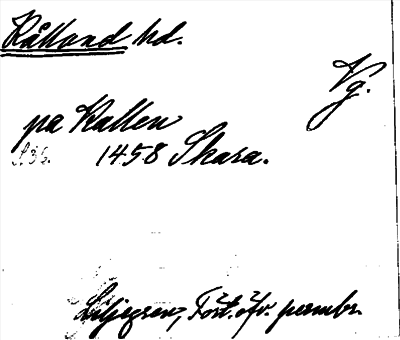 Kålland hd.
Vg.
pa Kallen
1458 Skara.
Liljegren, Fört. öfv. permbr.